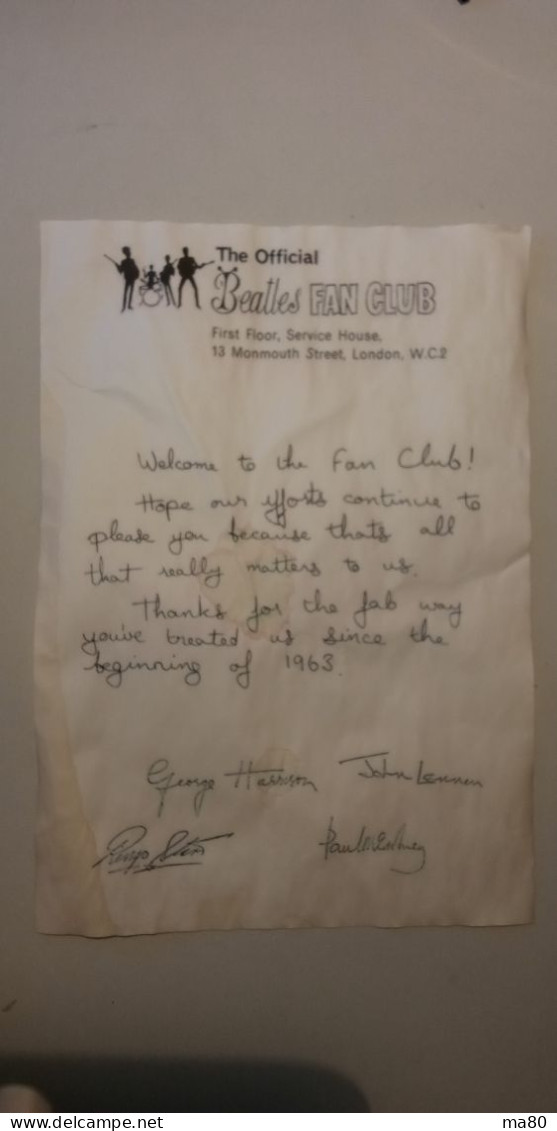 The Official
Beatles FAN CLUB
First Floor, Service House,
13 Monmouth Street, London, W.C.2
Welcome to the Fan Club!
Hope our efforts continue to
please you because thats all
that really matters to us.
Thanks for the fab way
you've treated us since the
beginning of 1963.
George Harrison John Lennon
Ringo Starr Paul McCartney
delcampe.net
ma80